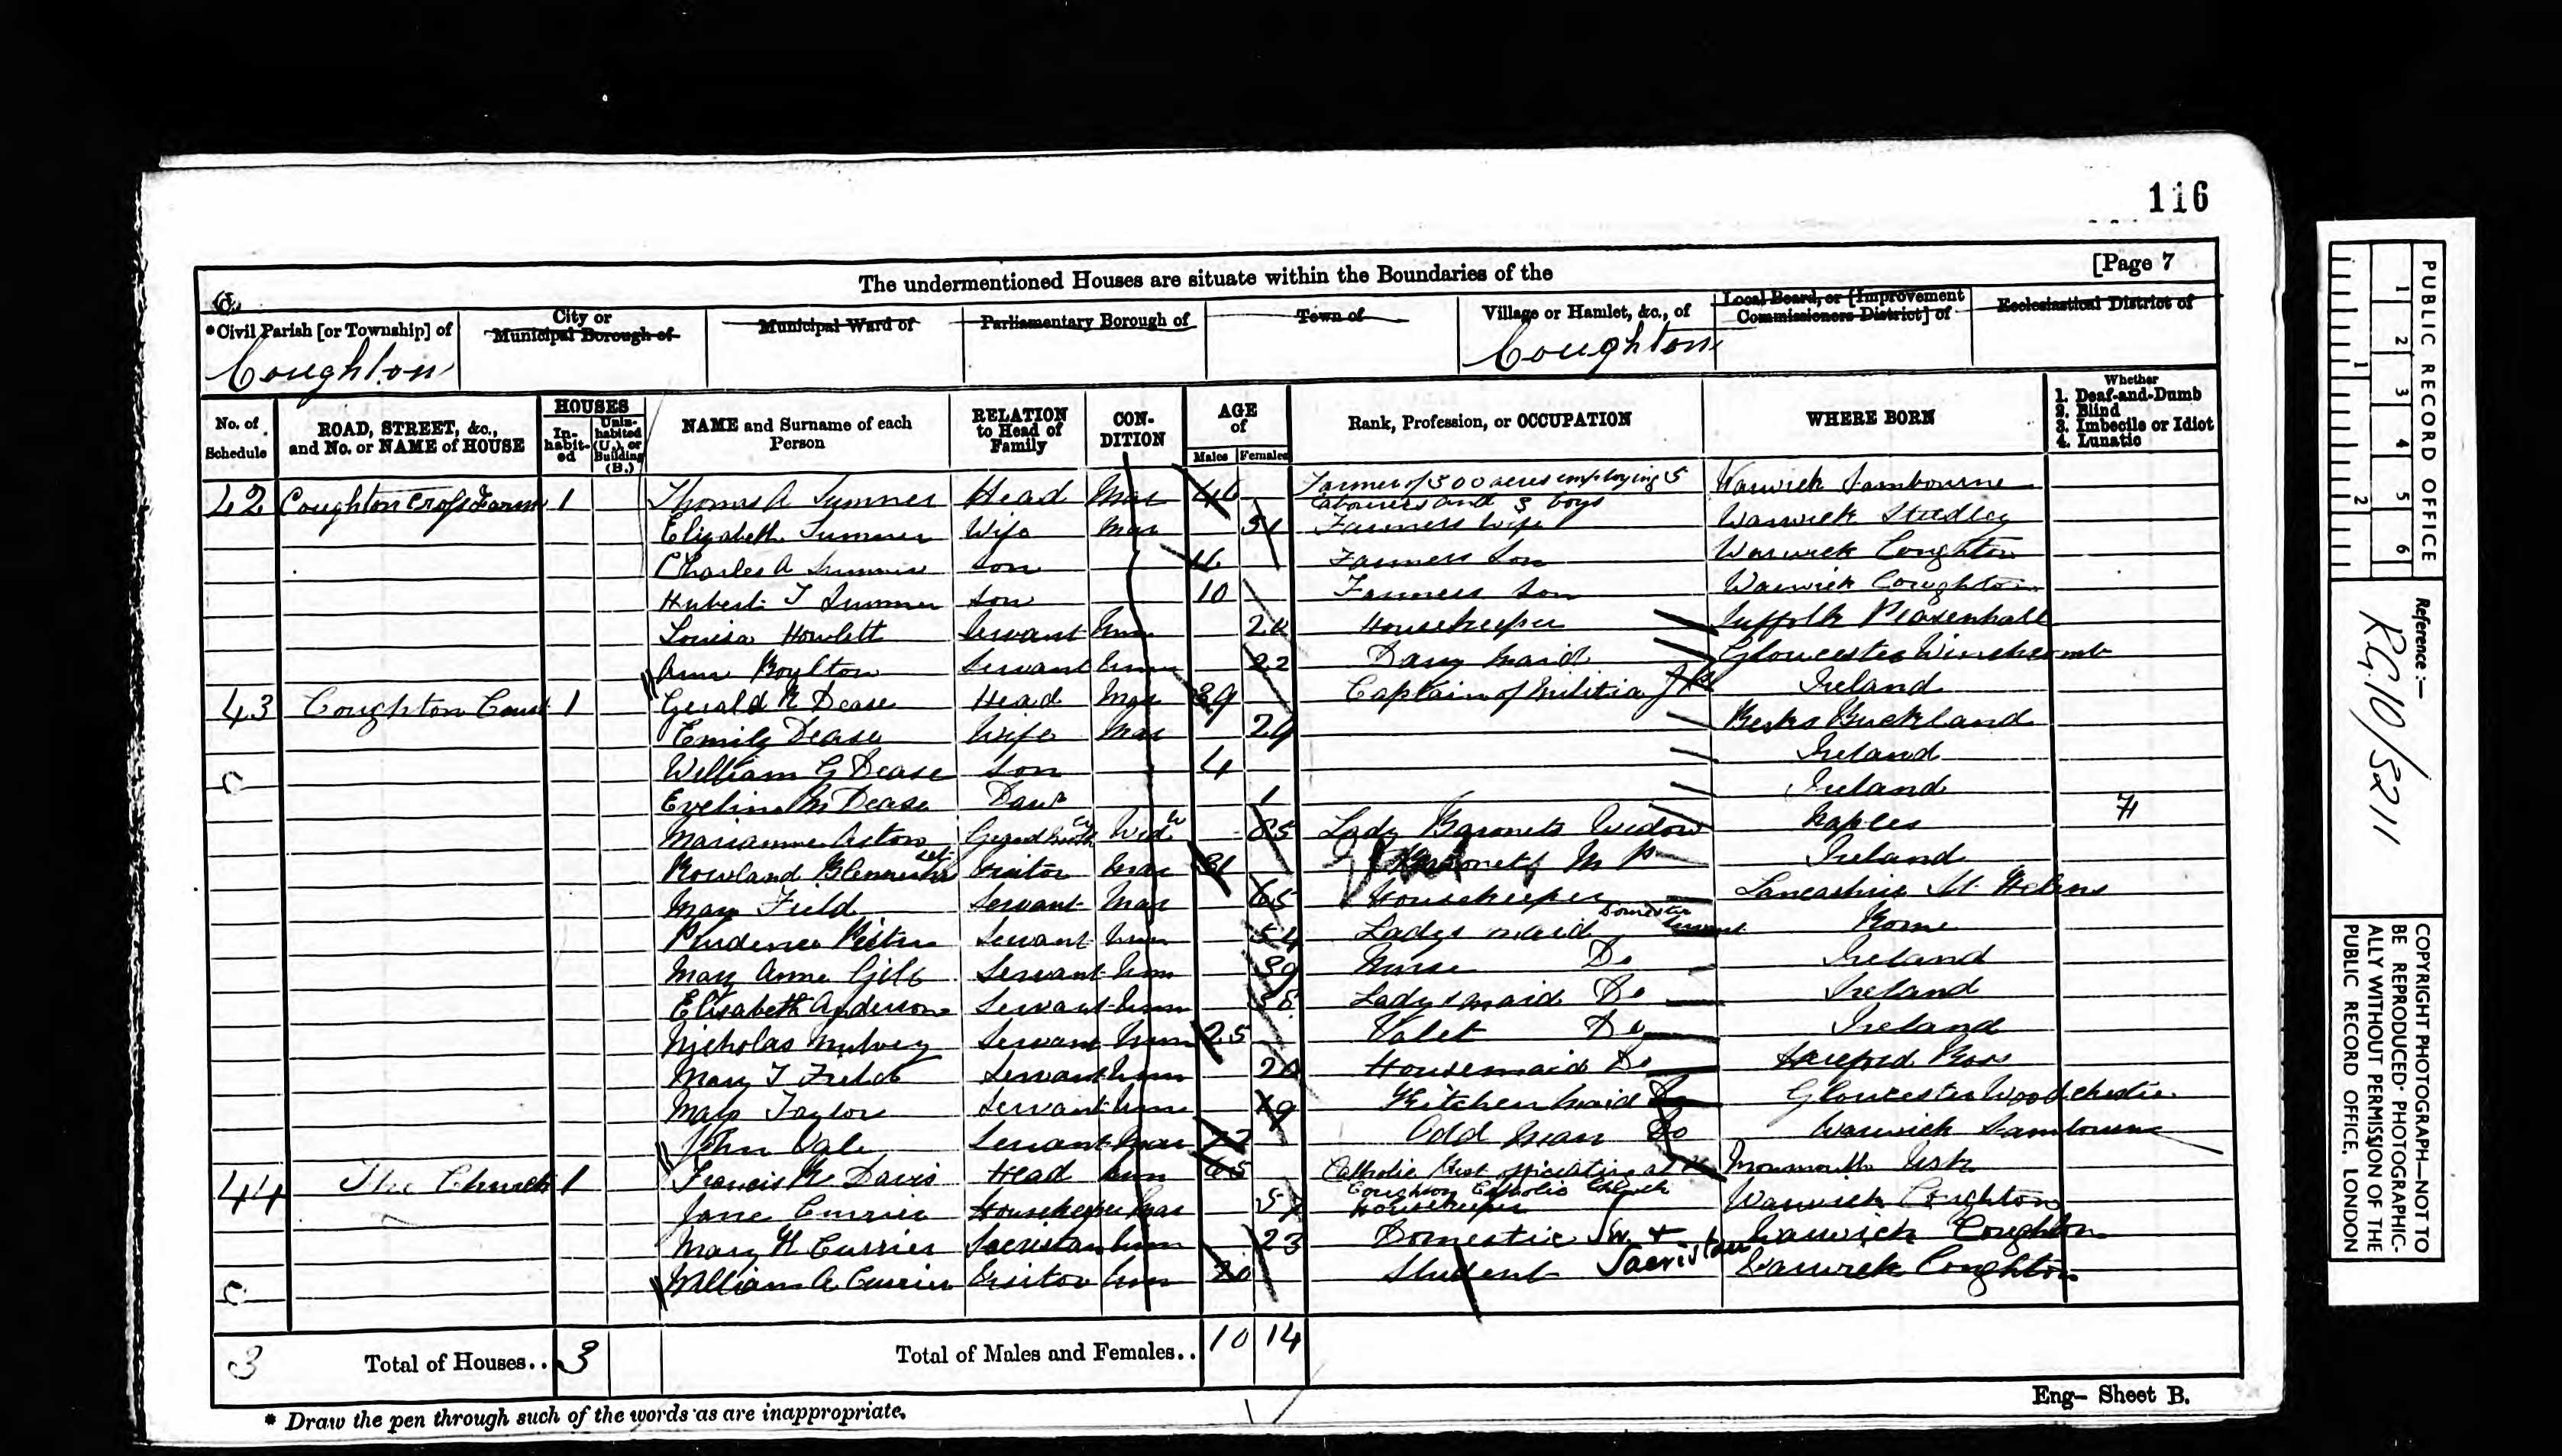 116
The undermentioned Houses are situate within the Boundaries of the [Page 7
*Civil Parish [or Township] of City or Municipal Borough of Municipal Ward of Parliamentary Borough of Town of Village or Hamlet, &c., of Local Board, or [Improvement Commissioners District] of Ecclesiastical District of
Coughton Coughton
No. of Schedule ROAD, STREET, &c., and No. or NAME of HOUSE HOUSES Inhabited Uninhabited (U.), or Building (B.) NAME and Surname of each Person RELATION to Head of Family CONDITION AGE of Males Females Rank, Profession, or OCCUPATION WHERE BORN Whether 1. Deaf-and-Dumb 2. Blind 3. Imbecile or Idiot 4. Lunatic
42 Coughton Cross Farm 1 Thomas A Sumner Head Mar Farmer of 300 acres employing 5 labourers and 3 boys Warwick Sambourne
Elizabeth Sumner Wife Mar 51 Farmers Wife Warwick Studley
Charles A Sumner Son Farmers Son Warwick Coughton
Hubert T Sumner Son 10 Farmers Son Warwick Coughton
Louisa Howlett Servant Unm Housekeeper Suffolk Peasenhall
Ann Boylton Servant Unm 22 Dairy Maid Gloucester Winchcomb
43 Coughton Court 1 Gerald R Dease Head Mar 39 Captain of Militia Ireland
Emily Dease Wife Mar Berks Buckland
William G Dease Son 4 Ireland
Eveline M Dease Daur 1 Ireland
Marianne Aston Widw 85 Lady Baronets Widow Naples
Rowland Visitor Mar 31 Baronet M P Ireland
Mary Field Servant Mar 65 Housekeeper Lancashire St Helens
Prudence Servant Unm 54 Ladys maid Domestic Servant Rome
Mary Anne Servant Unm 39 Nurse Do Ireland
Elisabeth Anderson Servant Unm 38 Ladys maid Do Ireland
Nicholas Mulvey Servant Unm 25 Valet Do Ireland
Mary T Field Servant Unm Housemaid Do Hereford Ross
Mary Taylor Servant Unm 19 Kitchen Maid Do Gloucester Woodchester
John Vale Servant Mar Odd Man Do Warwick Sambourne
44 The Church 1 Francis R Davis Head Unm 65 Catholic Priest officiating at Coughton Catholic Church Monmouth Usk
Jane Currier Housekeeper Mar Housekeeper Warwick Coughton
Mary H Currier Sacristan Unm 23 Domestic Sv + Sacristan Warwick Coughton
William A Currier Visitor Unm 20 Student Warwick Coughton
3 Total of Houses.. 3 Total of Males and Females.. 10 14
* Draw the pen through such of the words as are inappropriate.
Eng- Sheet B.
PUBLIC RECORD OFFICE
1 2 3 4 5 6
1 2
Reference:-
RG10/3211
COPYRIGHT PHOTOGRAPH—NOT TO
BE REPRODUCED PHOTOGRAPHIC-
ALLY WITHOUT PERMISSION OF THE
PUBLIC RECORD OFFICE, LONDON